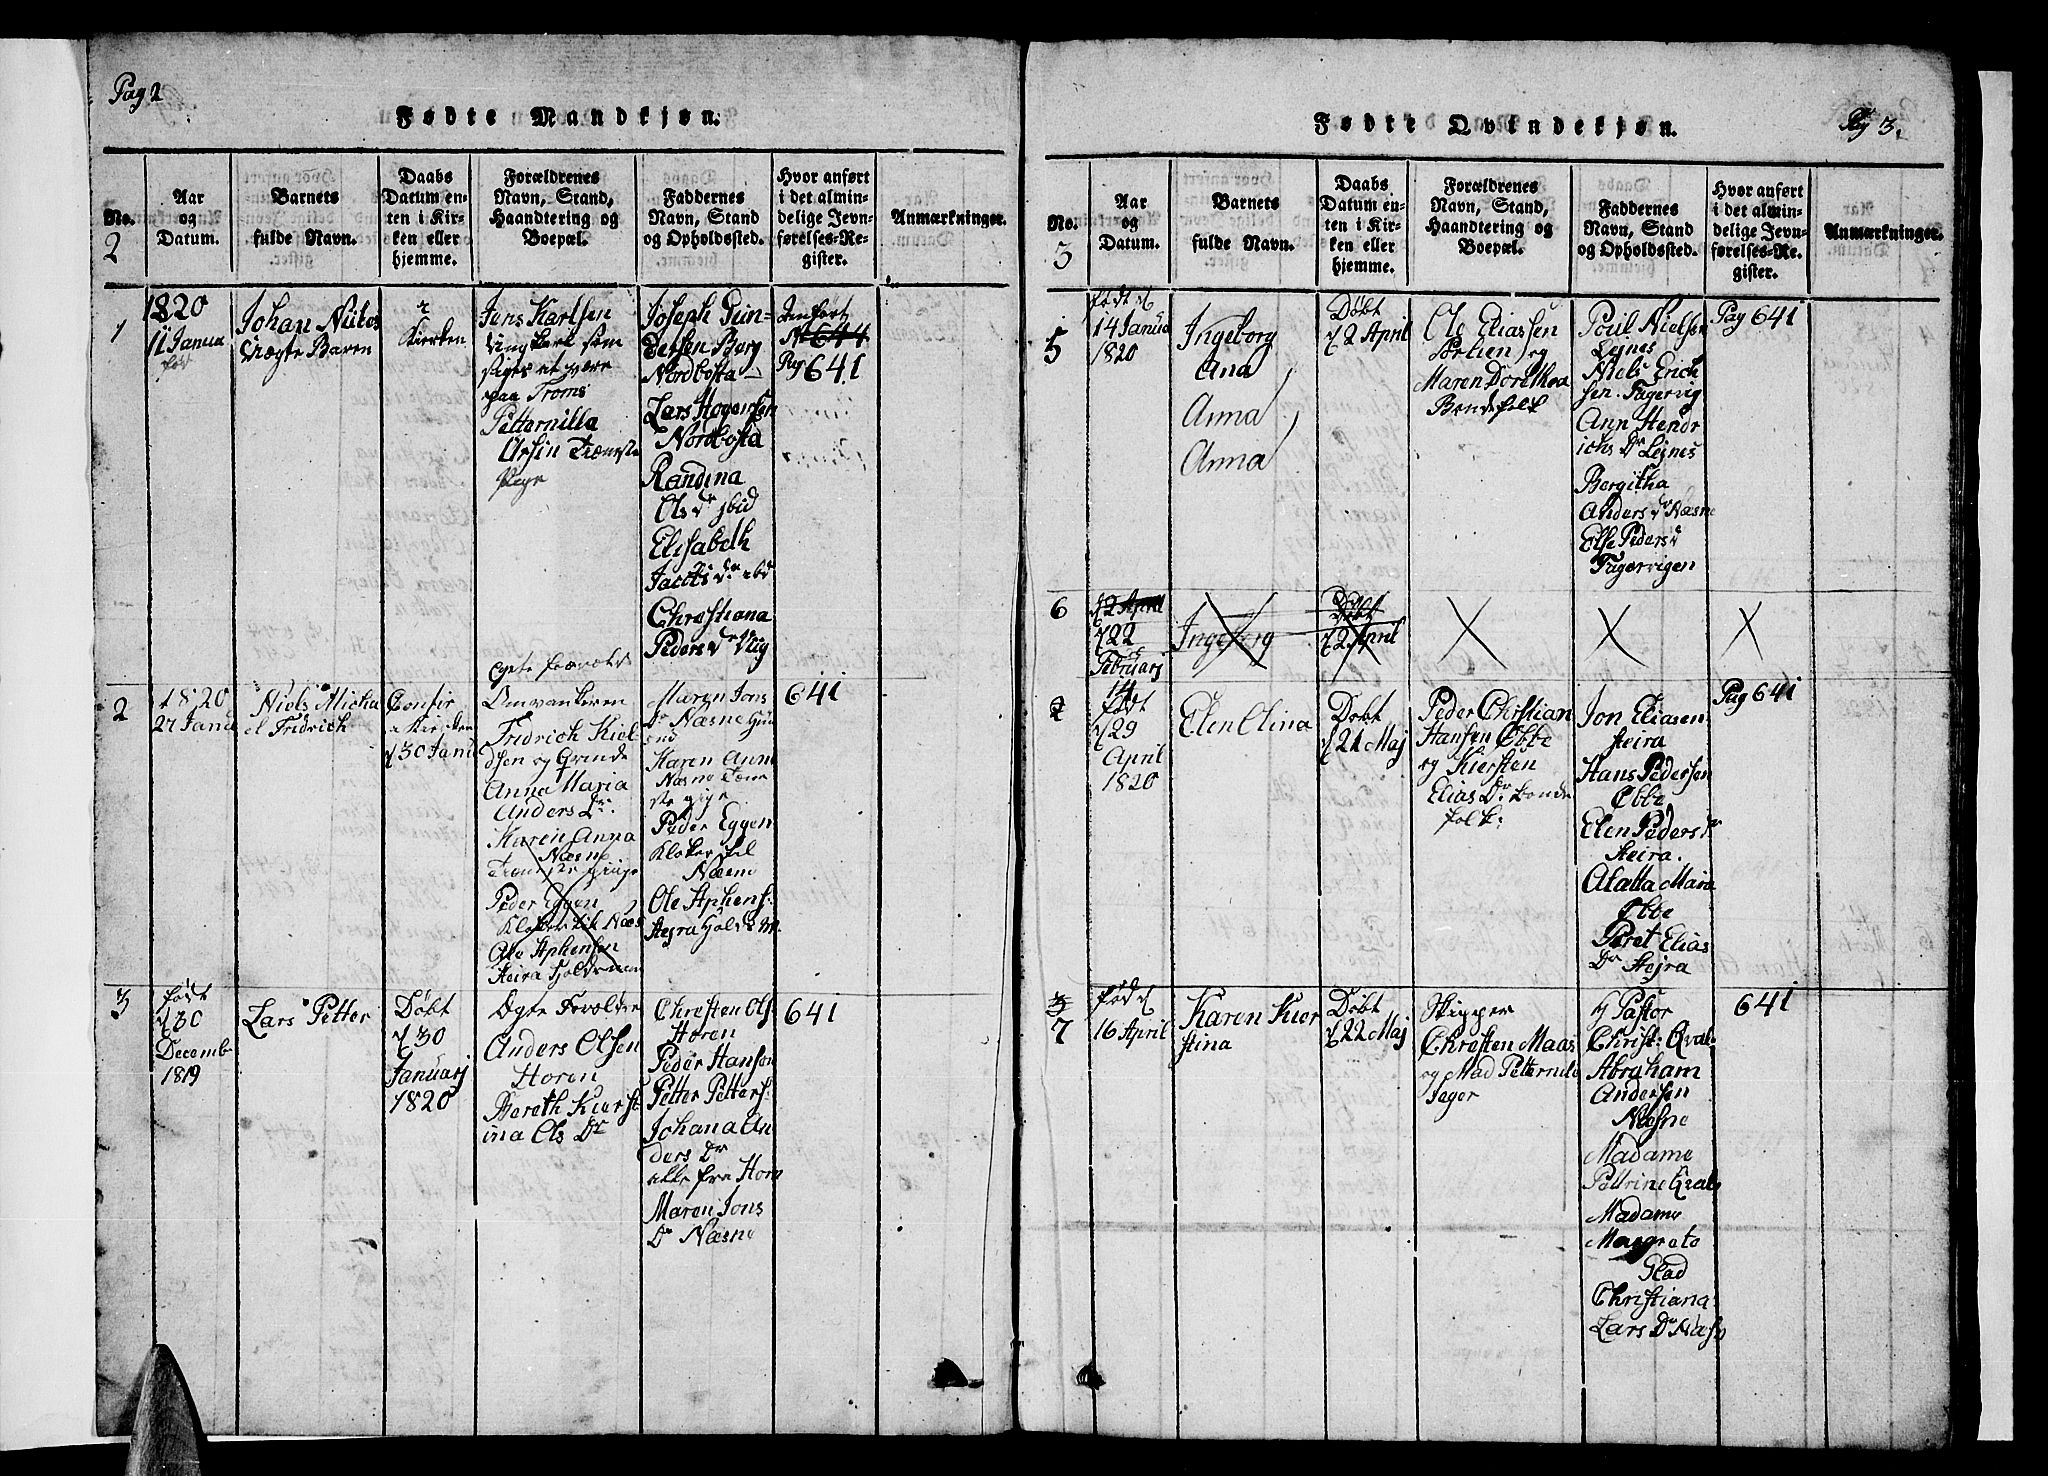 Pag 2
Fødte Mandkjøn.
No.
2
Aar
og
Datum.
Barnets
fulde Navn.
Daabs
Datum en-
ten i Kir-
ken eller
hjemme.
Forældrenes
Navn, Stand,
Haandtering og
Boepæl.
Faddernes
Navn, Stand
og Opholdssted.
Hvor anført
i det almin-
delige Jevn-
førelses-Re-
gister.
Anmærkninger.
1
1820
11 Janua
født
Johan
Uægte Baren
Kierken
Jens Karlsen
Ung Karl som
siges at være
paa Troms
Petternilla
Tienste
Pige
Joseph
Bersen Berg
Nordbosta
Lars
Nordbosta
Randina
Ols Dr jbid
Elisabeth
Jacobs Dr ebd
Christiana
Peders Dr Vig
Pag
641
2
1820
27 Janua
Niels Micha
el Fridrich
Confir
i Kirken
d 30 Janu
Egte
Fridrich Kiel
dsen og Qvinde
Anna Maria
Anders Dr
Karen Anna
Næsne
Peder Eggen
Næs
Ole Stphensen
Steira
Maren Jons
Dr Næsne
Karen Anne
Næsne
ste pige
Peder Eggen
Kloker til
Næsne
Ole Stphens:
641
3
født
d 30
Decemb
1819
Lars Petter
Døbt
d 30
Januarj
1820
Ægte Forældre
Anders Olsen
Horen
Bereth Kierst
ina Ols Dr
Christen Ols
Horen
Peder Hansen
Petter Petters:
Johana An
ders Dr
alle fra Horn
Maren Jons
Dr Næsne
641
Fødte Qvindekjøn.
Pag 3.
No.
3
Aar
og
Datum.
Barnets
fulde Navn.
Daabs
Datum en-
ten i Kir-
ken eller
hjemme.
Forældrenes
Navn, Stand,
Haandtering og
Boepæl.
Faddernes
Navn, Stand
og Opholdssted.
Hvor anført
i det almin-
delige Jevn-
førelses-Re-
gister.
Anmærkninger.
5
født d
14 Janua
1820
Ingeborg
Ana
Anna
Anna
Døbt
d 2 April
Ole Eliassen
og
Maren Dorethea
Bondefolk
Poul Nielsen
Lejnes
Niels Erich
sen Fagervig
Ann Hendr
ichs Dr Lejnes
Bergitha
Anders Dr Næsne
Else Peders D
Fagervigen
Pag 641
6
d 2 April
d 22
Februarj
Ingeborg
Døbt
d 2 April
født
d 29
April
1820
Elen Elina
Døbt
d 21 Maj
Peder Christian
Hansen Ebbe
og Kiersten
Elias Dr bonde
folk:
Jon Eliasen
steira
Hans Pedersen
Ebbe
Elen Peders Dr
Steira.
Maria
Ebbe
Peret Elias
Dr Stejra
Pag 641
7
født d
16 April
Karen Kier
stina
Døbt
d 22 Maj
Skipper
Christen Maas
og Mad Petternille
Jager
Hr Pastor
Christ: Qvale
Abraham
Andersen
Næsne
Madame
Pettrine Qvale
Madame
Margrete
Glad
Christiana
Lars Dr Næsn
641